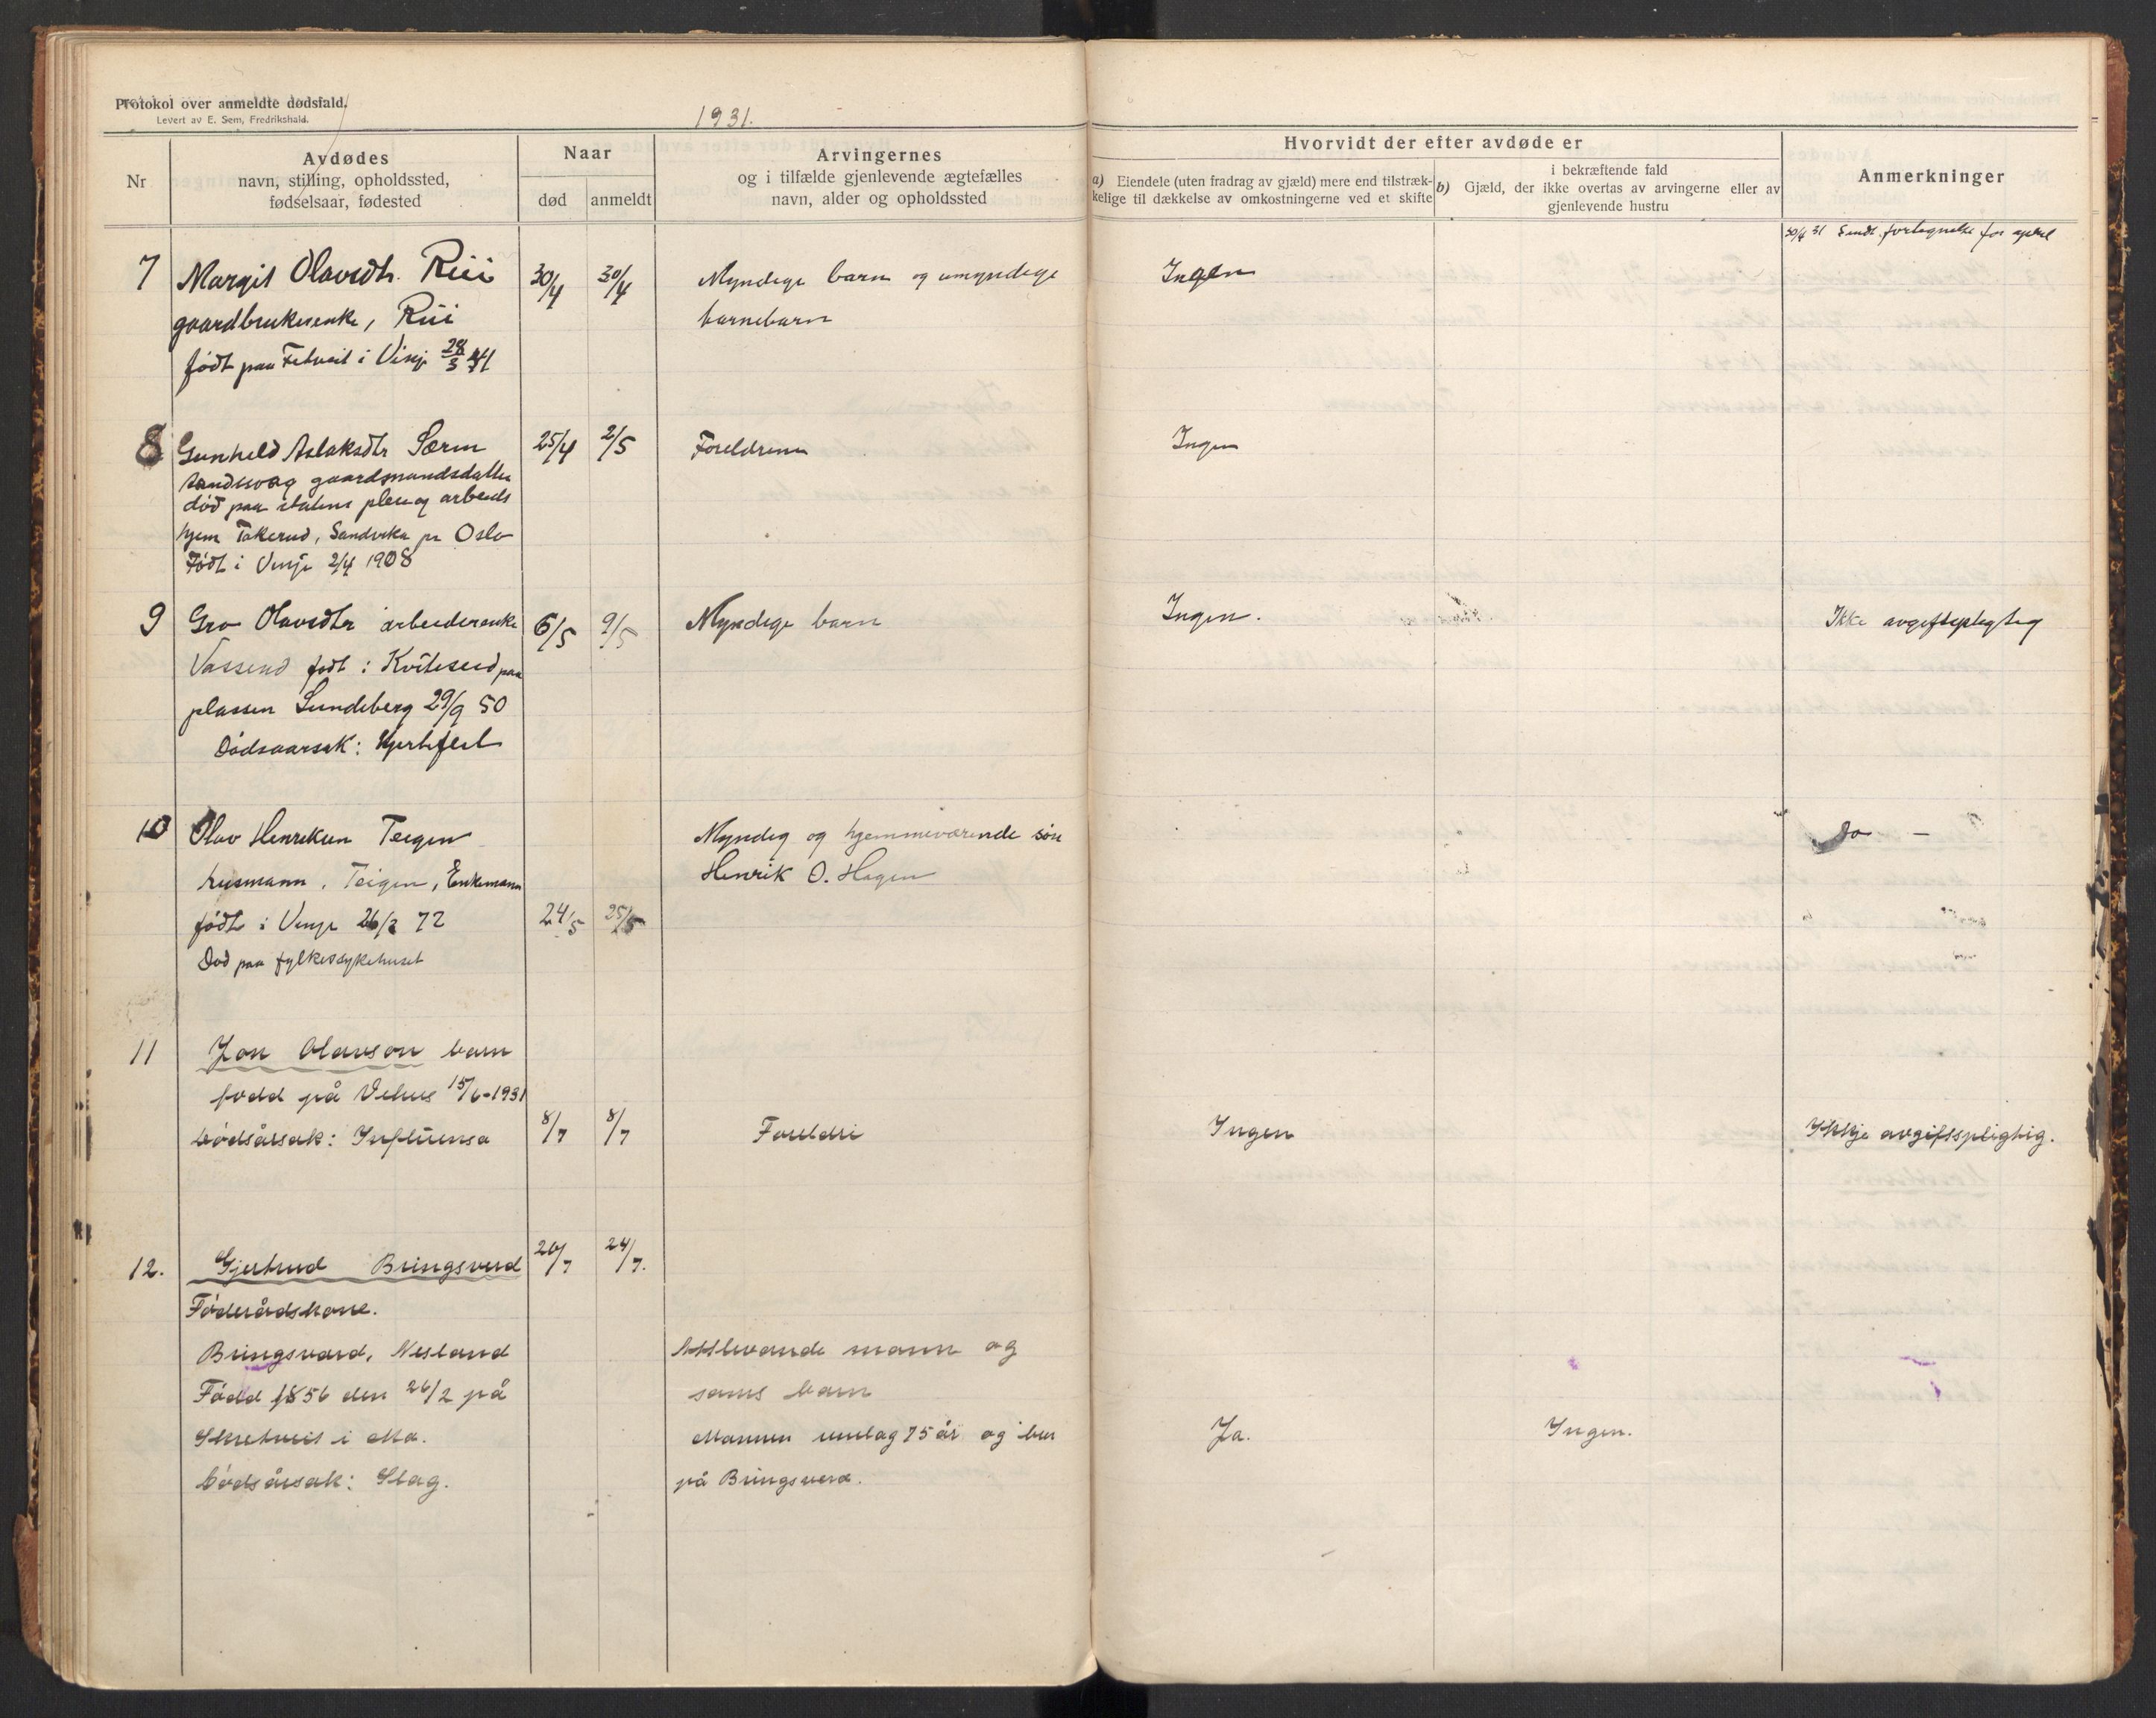 Protokol over anmeldte dødsfald.
Levert av E. Sem, Fredrikshald.
1931.
Nr
Avdødes
navn, stilling, opholdssted,
fødselsaar, fødested
Naar
død
anmeldt
Arvingernes
og i tilfælde gjenlevende ægtefælles
navn, alder og opholdssted
Hvorvidt der efter avdøde er
a) Eiendele (uten fradrag av gjæld) mere end tilstræk-
kelige til dækkelse av omkostningerne ved et skifte
i bekræftende fald
b) Gjæld, der ikke overtas av arvingerne eller av
gjenlevende hustru
Anmerkninger
30/4 31 Sendt fortegnelse for april
7 Margit Olavsdtr. Rui 30/4 30/4 Myndige barn og umyndige Ingen
gaardbrukerenke, Rui barnebarn
født paa i Vinje 28/3
8 Gunhild Aslaksdtr Særen 25/4 2/5 Foreldrene Ingen
gaardmandsdatter
død paa statens pleie og arbeids
hjem Tokerud, Sandvika pr Oslo
Født i Vinje 2/4 1908
9 Gro Olavsdtr arbeiderenke 6/5 9/5 Myndige barn Ingen. Ikke avgiftspligtig
Vassend født i Kviteseid paa
plassen Sundeberg 29/9 50
Dødsaarsak: Hjertefeil
10 Olav Henriksen Teigen Myndig og hjemmeværende søn Do —
husmann, Teigen, Enkemann Henrik O. Hagen
født i Vinje 26/2 72 24/5 25/5
Død paa fylkessykehuset
11 Jon Olavson barn
fødd på Vehus 15/6-1931
Dødsårsak: Influensa 8/7 8/7 Foreldri Ingen Ikkje avgiftspligtig.
12. Gjertrud Bringsverd 20/7 24/7.
Føderådskone.
Bringsverd, Nesland Attlevande mann og
Fødd 1856 den 26/2 på sams barn
i Mo. Mannen umlag 75 år og bur Ja. Ingen.
Dødsårsak: Slag. på Bringsverd.